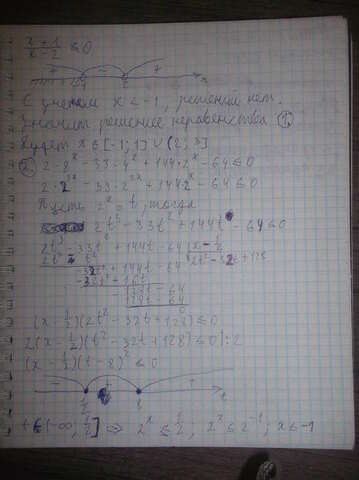 ≤ 0
+ - +
С учетом x < -1, решений нет.
Значит решение неравенства ①
будет x ∈ [-1; 1] ∪ (2; 3]
② 2·8^x - 33·4^x + 144·2^x - 64 ≤ 0
2·2^3x - 33·2^2x + 144·2^x - 64 ≤ 0
Пусть 2^x = t, тогда
2t^3 - 33t^2 + 144t - 64 ≤ 0
2t^3 - 33t^2 + 144t - 64 | x - 1/2
2t^3 - t^2 | 2t^2 - 32t + 128
-32t^2 + 144t - 64
-32t^2 + 16t
128t - 64
128t - 64
0
(x - 1/2)(2t^2 - 32t + 128) ≤ 0
(t - 8)^2 ≤ 0
- + +
1/2
t ∈ (-∞; 1/2] ⇒ 2^x ≤ 1/2; 2^x ≤ 2^-1; x ≤ -1